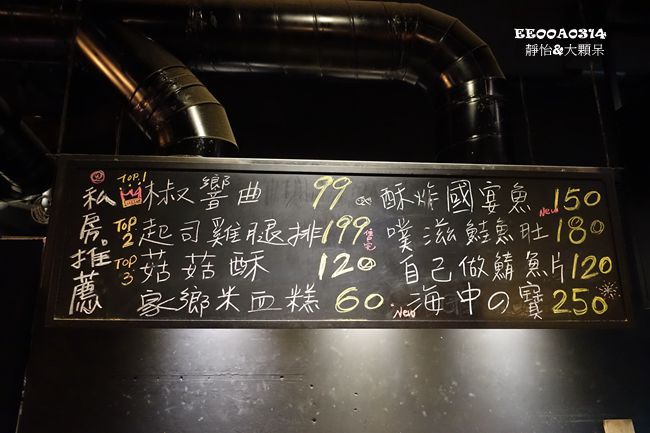 EE00A0314
靜怡&大顆呆
私房推薦
TOP.1 椒響曲 99
TOP 2 起司雞腿排 199
TOP 3 菇菇酥 120
家鄉米血糕 60
酥炸國宴魚 New 150
噗滋鮭魚肚 180
自己做鯖魚片 120
New 海中の寶 250